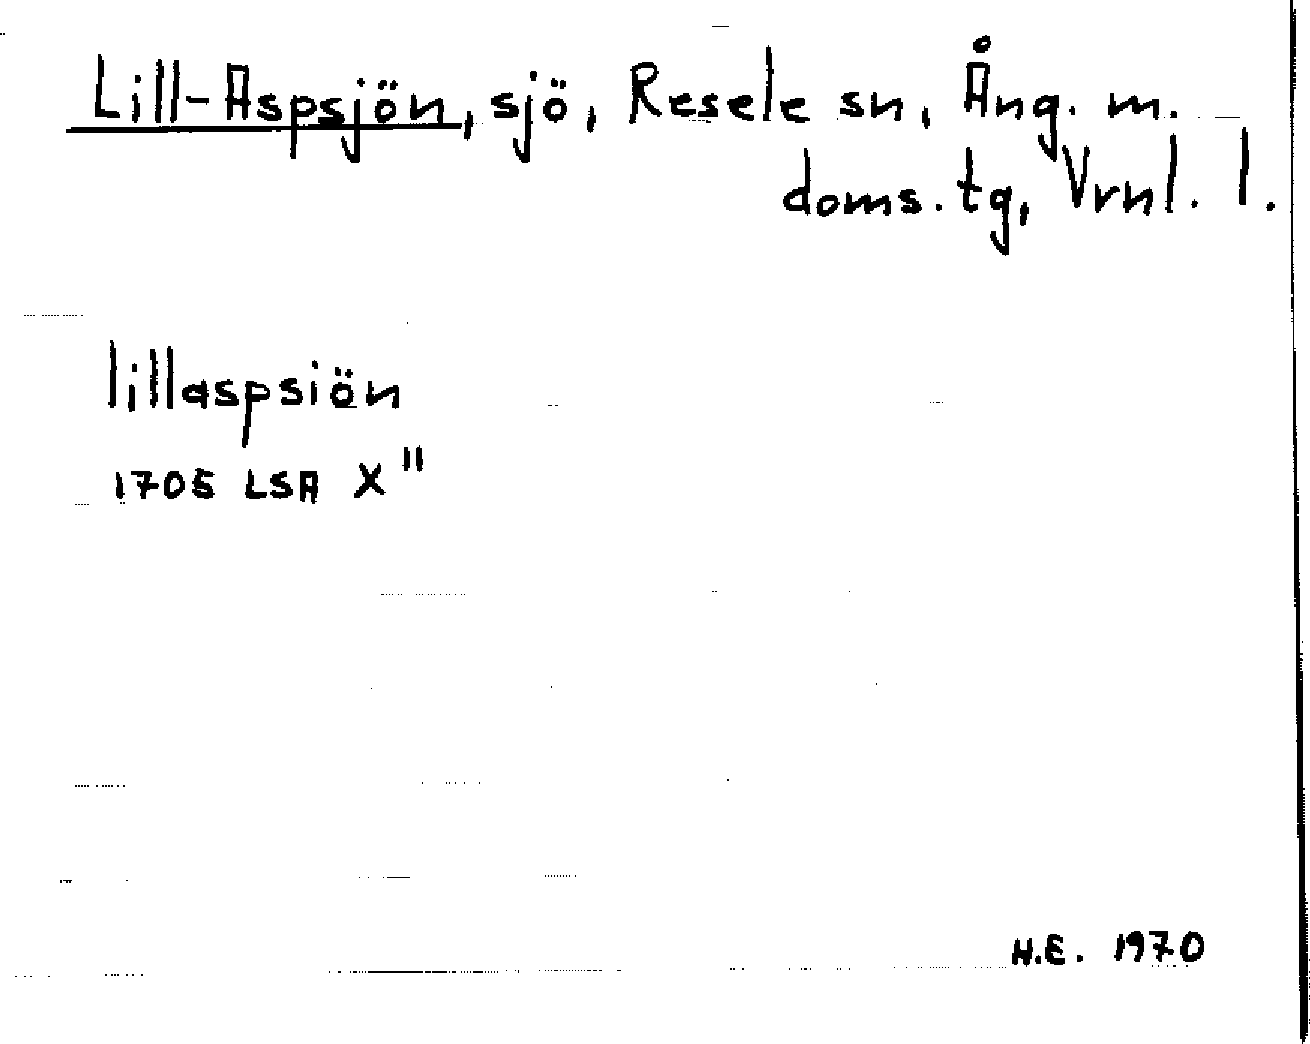 Lill-Aspsjön, sjö, Resele sn, Ång. m.
doms. tg, Vrnl. l.
lillaspsiön
1705 LSA X"
H.E. 1970